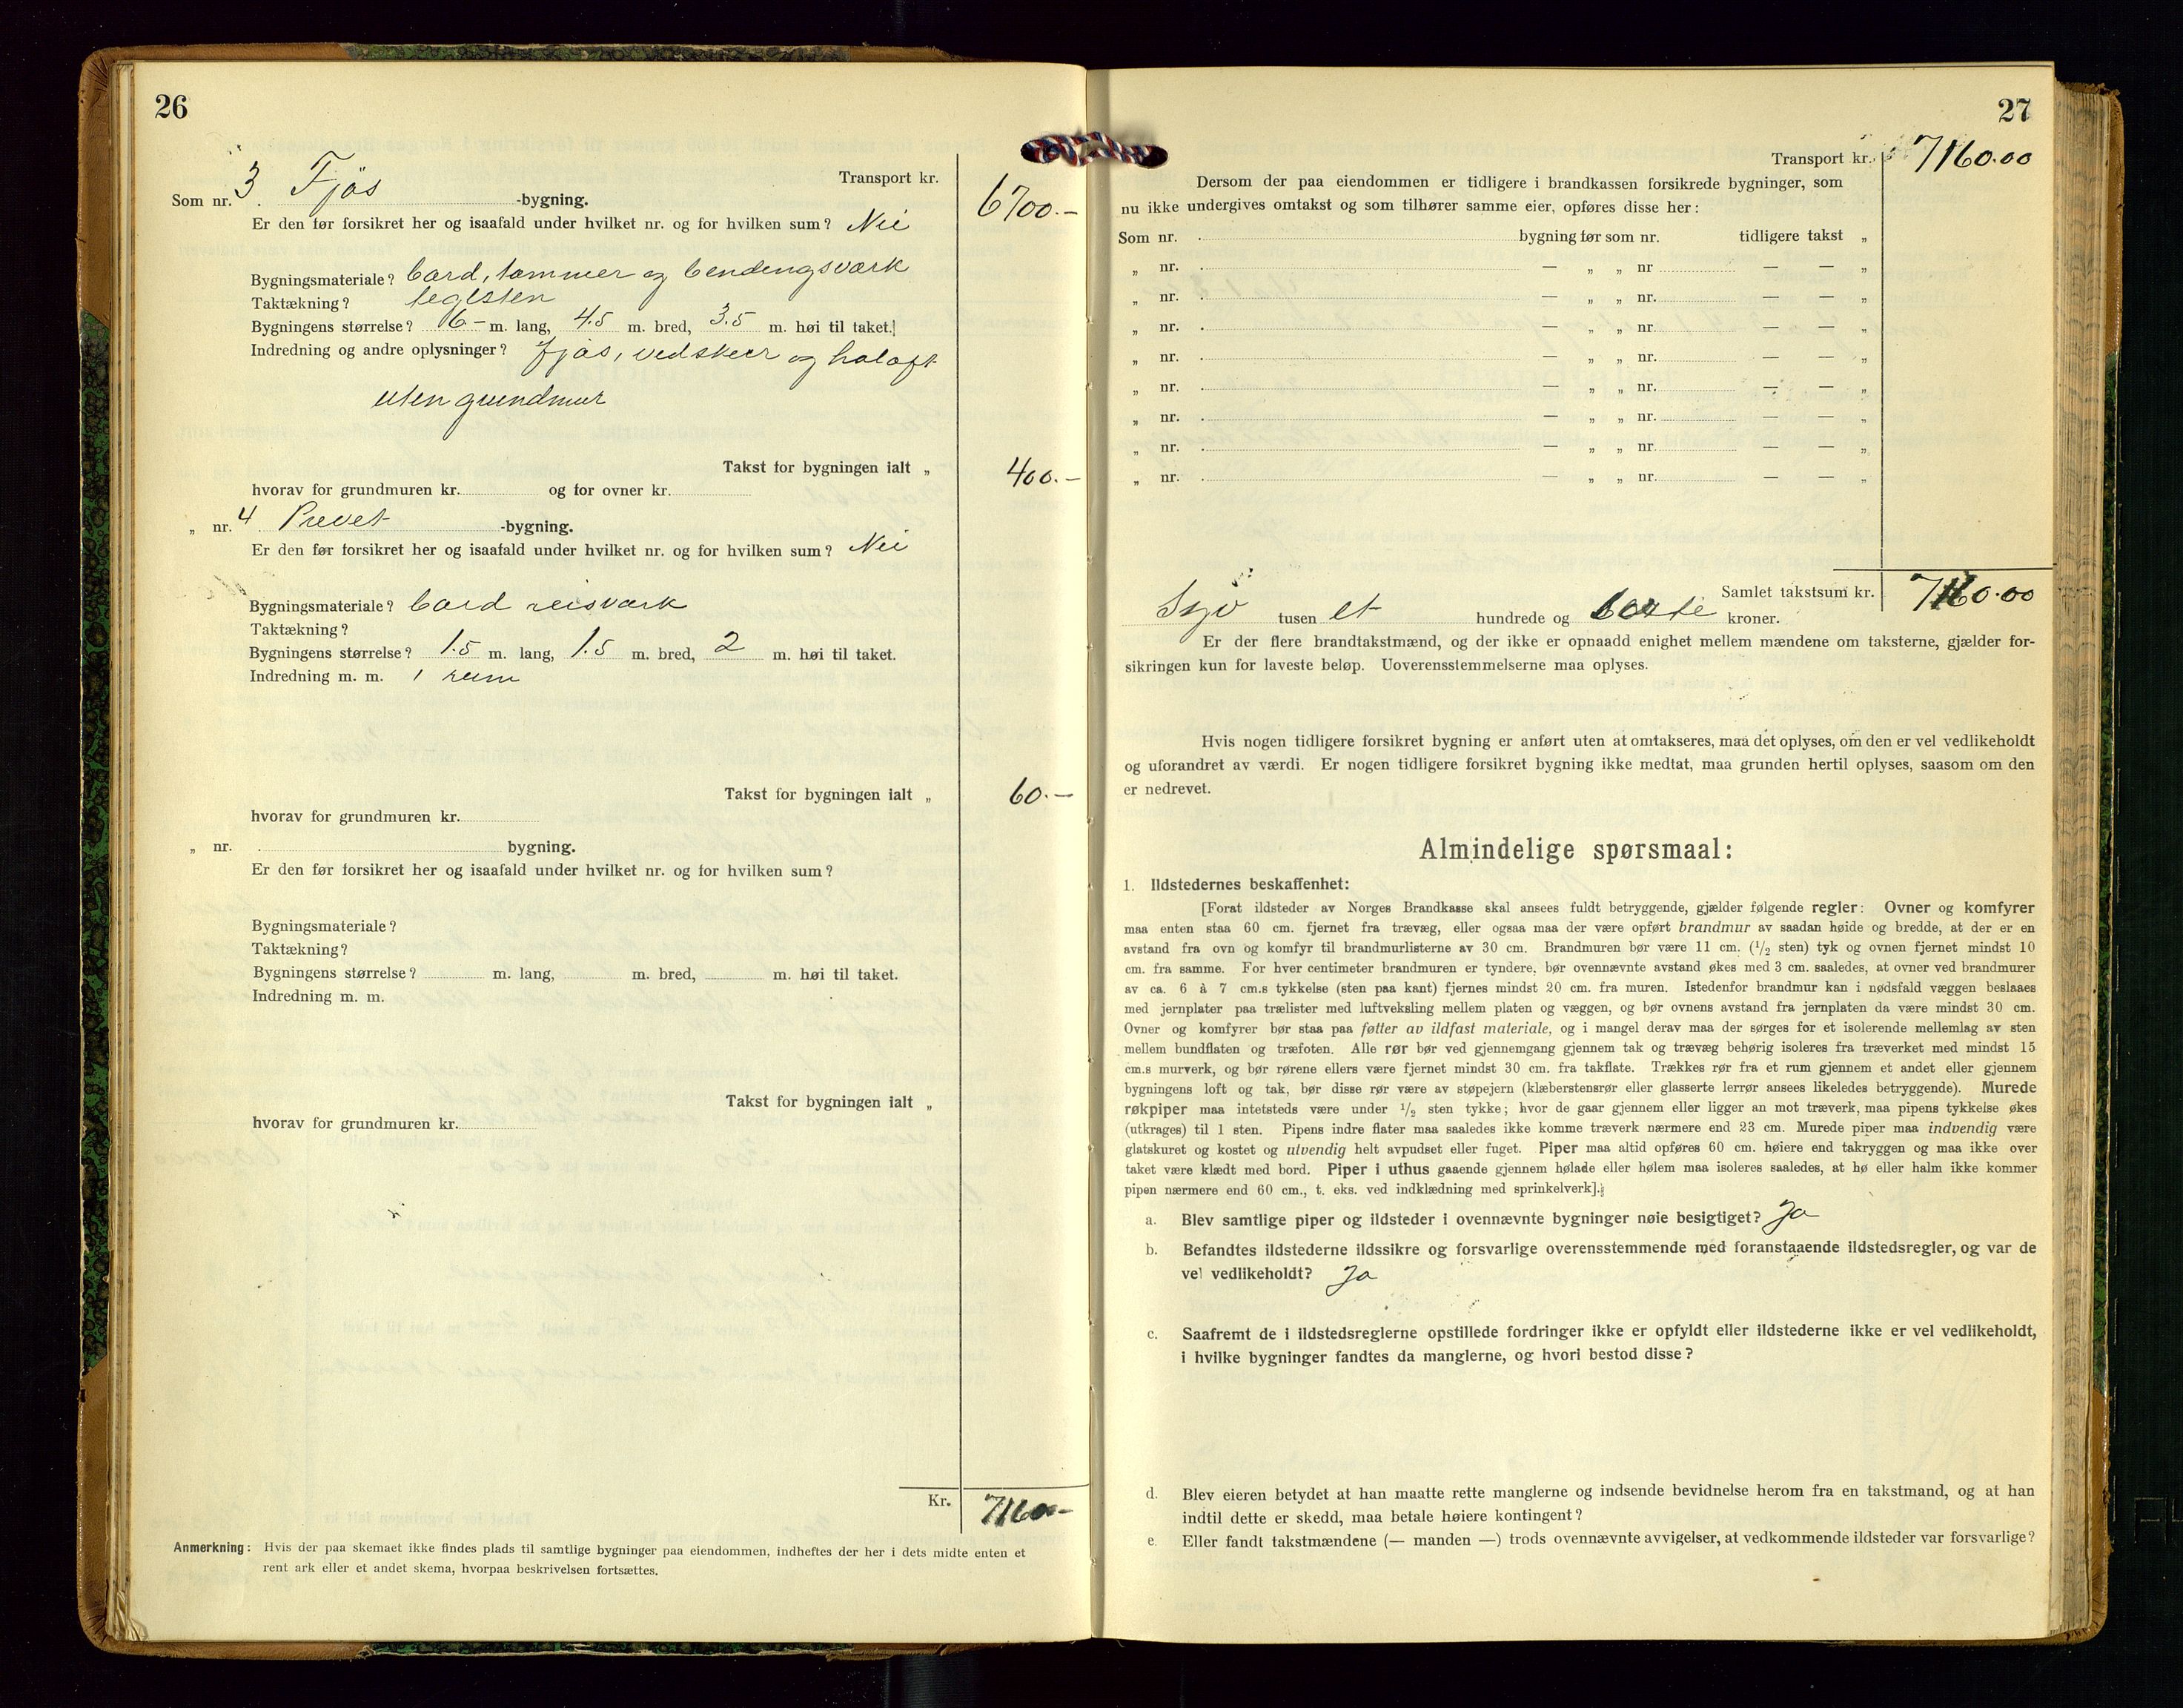 26
Transport kr. 6700.-
Som nr. 3. Fjøs -bygning.
Er den før forsikret her og isaafald under hvilket nr. og for hvilken sum? Nei
Bygningsmateriale? bord, tømmer og bendingsværk
Taktækning? teglsten
Bygningens størrelse? 6- m. lang, 4.5 m. bred, 3.5 m. høi til taket.
Indredning og andre oplysninger? fjøs, vedskeer og høloft
uten grundmur
Takst for bygningen ialt „ 400.-
hvorav for grundmuren kr. og for ovner kr.
„ nr. 4 Privet -bygning.
Er den før forsikret her og isaafald under hvilket nr. og for hvilken sum? Nei
Bygningsmateriale? bord reisværk
Taktækning?
Bygningens størrelse? 1.5 m. lang, 1.5 m. bred, 2 m. høi til taket.
Indredning m. m. 1 rum
Takst for bygningen ialt „ 60.-
hvorav for grundmuren kr.
„ nr. . bygning.
Er den før forsikret her og isaafald under hvilket nr. og for hvilken sum?
Bygningsmateriale?
Taktækning?
Bygningens størrelse? m. lang, m. bred, m. høi til taket.
Indredning m. m.
Takst for bygningen ialt „
hvorav for grundmuren kr.
Kr. 7160-
Anmerkning: Hvis der paa skemaet ikke findes plads til samtlige bygninger paa eiendommen, indheftes der her i dets midte enten et
rent ark eller et andet skema, hvorpaa beskrivelsen fortsættes.
27
Transport kr. 7160.00
Dersom der paa eiendommen er tidligere i brandkassen forsikrede bygninger, som
nu ikke undergives omtakst og som tilhører samme eier, opføres disse her:
Som nr. . bygning før som nr. tidligere takst „
„ nr. . — „ „ nr — — „
„ nr. . — „ „ nr. — — „
„ nr. . — „ „ nr. — — „
„ nr. . — „ „ nr. — — „
„ nr. . — „ „ nr. — — „
„ nr. . — „ „ nr. — — „
„ nr. . — „ „ nr. — — „
„ nr. . — „ „ nr. — — „
Samlet takstsum kr. 7160.00
Syv tusen et hundrede og kroner.
Er der flere brandtakstmænd, og der ikke er opnaadd enighet mellem mændene om taksterne, gjælder for-
sikringen kun for laveste beløp. Uoverensstemmelserne maa oplyses.
Hvis nogen tidligere forsikret bygning er anført uten at omtakseres, maa det oplyses, om den er vel vedlikeholdt
og uforandret av værdi. Er nogen tidligere forsikret bygning ikke medtat, maa grunden hertil oplyses, saasom om den
er nedrevet.
Almindelige spørsmaal:
1. Ildstedernes beskaffenhet:
[Forat ildsteder av Norges Brandkasse skal ansees fuldt betryggende, gjælder følgende regler: Ovner og komfyrer
maa enten staa 60 cm. fjernet fra trævæg, eller ogsaa maa der være opført brandmur av saadan høide og bredde, at der er en
avstand fra ovn og komfyr til brandmurlisterne av 30 cm. Brandmuren bør være 11 cm. (1/2 sten) tyk og ovnen fjernet mindst 10
cm. fra samme. For hver centimeter brandmuren er tyndere, bør ovennævnte avstand økes med 3 cm. saaledes, at ovner ved brandmurer
av ca. 6 à 7 cm.s tykkelse (sten paa kant) fjernes mindst 20 cm. fra muren. Istedenfor brandmur kan i nødsfald væggen beslaaes
med jernplater paa trælister med luftveksling mellem platen og væggen, og bør ovnens avstand fra jernplaten da være mindst 30 cm.
Ovner og komfyrer bør staa paa føtter av ildfast materiale, og i mangel derav maa der sørges for et isolerende mellemlag av sten
mellem bundflaten og træfoten. Alle rør bør ved gjennemgang gjennem tak og trævæg behørig isoleres fra træverket med mindst 15
cm.s murverk, og bør rørene ellers være fjernet mindst 30 cm. fra takflate. Trækkes rør fra et rum gjennem et andet eller gjennem
bygningens loft og tak, bør disse rør være av støpejern (klæberstensrør eller glasserte lerrør ansees likeledes betryggende). Murede
røkpiper maa intetsteds være under 1/2 sten tykke; hvor de gaar gjennem eller ligger an mot træverk, maa pipens tykkelse økes
(utkrages) til 1 sten. Pipens indre flater maa saaledes ikke komme træverk nærmere end 23 cm. Murede piper maa indvendig være
glatskuret og kostet og utvendig helt avpudset eller fuget. Piper maa altid opføres 60 cm. høiere end takryggen og maa ikke over
taket være klædt med bord. Piper i uthus gaaende gjennem hølade eller hølem maa isoleres saaledes, at hø eller halm ikke kommer
pipen nærmere end 60 cm., t. eks. ved indklædning med sprinkelverk].
a. Blev samtlige piper og ildsteder i ovennævnte bygninger nøie besigtiget? Ja
b. Befandtes ildstederne ildssikre og forsvarlige overensstemmende med foranstaaende ildstedsregler, og var de
vel vedlikeholdt? Ja
c. Saafremt de i ildstedsreglerne opstillede fordringer ikke er opfyldt eller ildstederne ikke er vel vedlikeholdt,
i hvilke bygninger fandtes da manglerne, og hvori bestod disse?
d. Blev eieren betydet at han maatte rette manglerne og indsende bevidnelse herom fra en takstmand, og at han
indtil dette er skedd, maa betale høiere kontingent?
e. Eller fandt takstmændene (— manden —) trods ovennævnte avvigelser, at vedkommende ildsteder var forsvarlige?